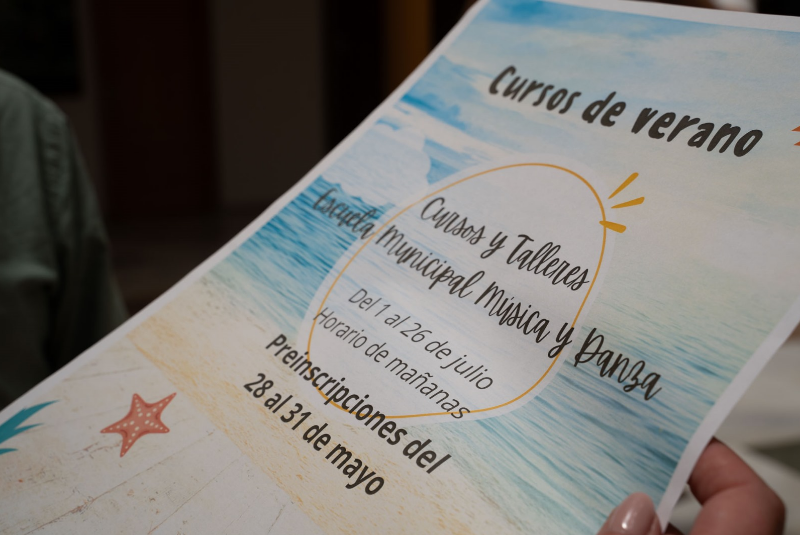 Cursos de verano
Cursos y Talleres
Escuela Municipal Música y Danza
Del 1 al 26 de julio
Horario de mañanas
Preinscripciones del
28 al 31 de mayo